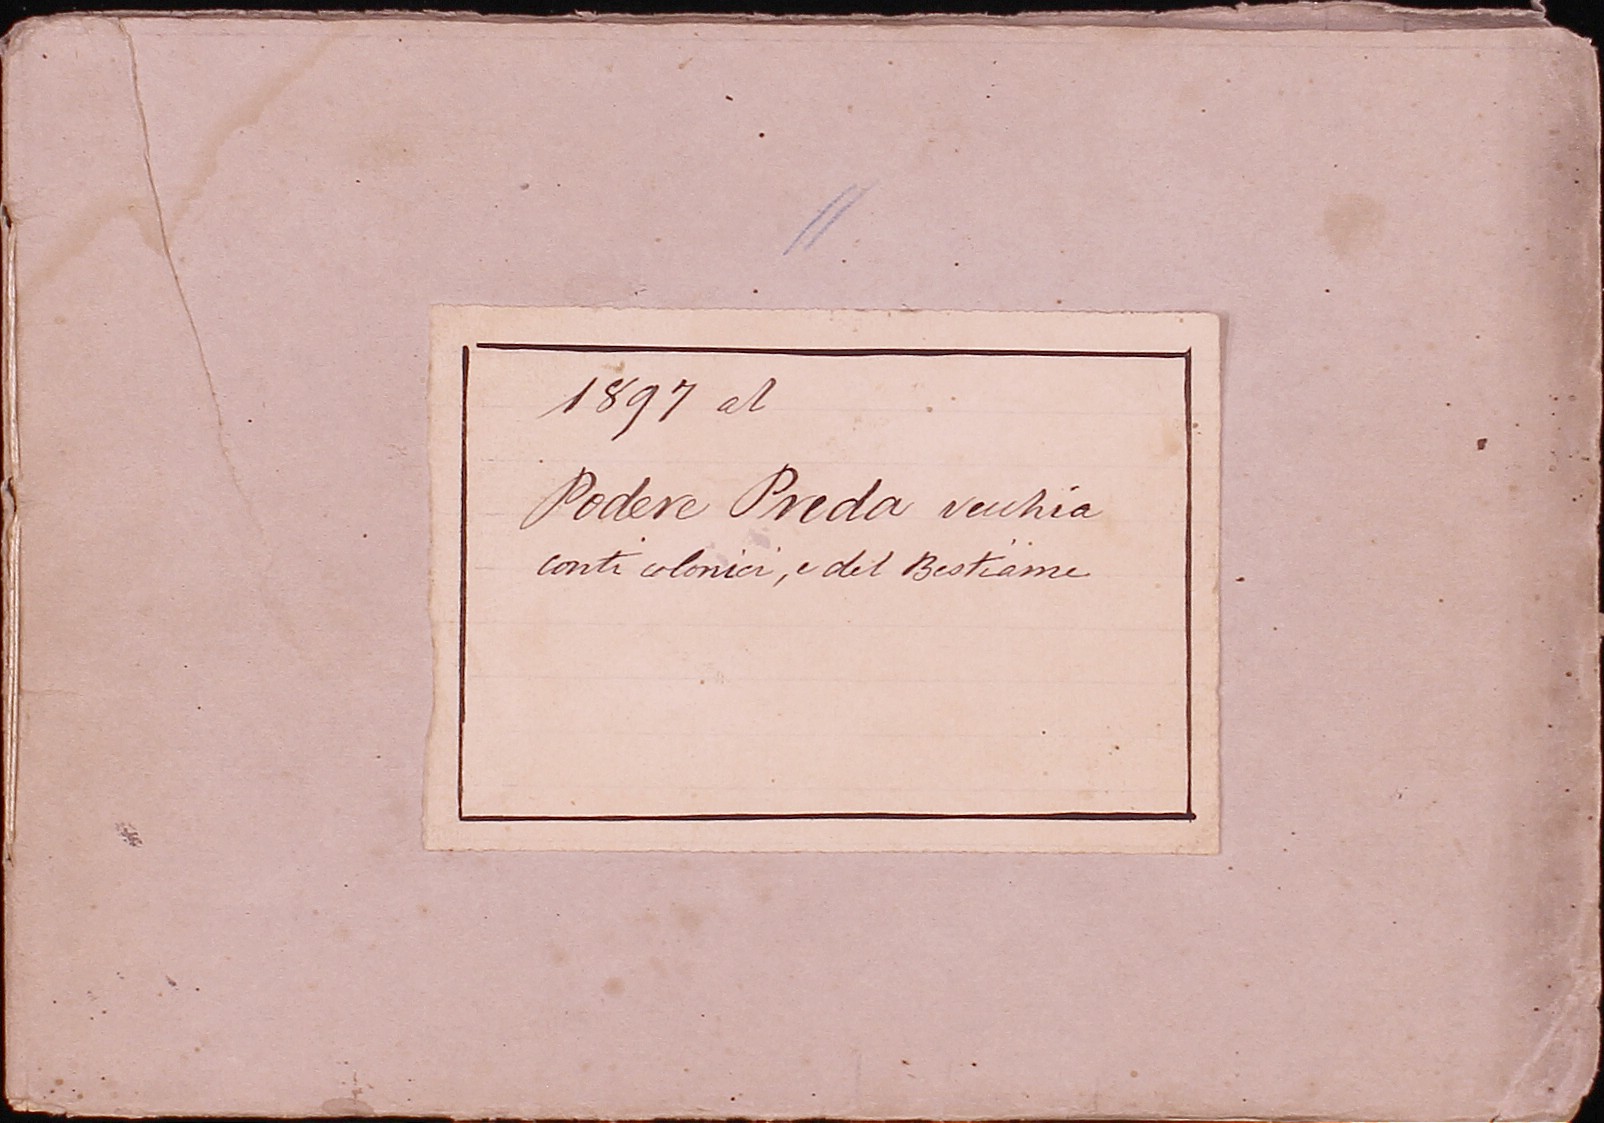 11
1897 al
Podere Preda vecchia
conti colonici, e del Bestiame